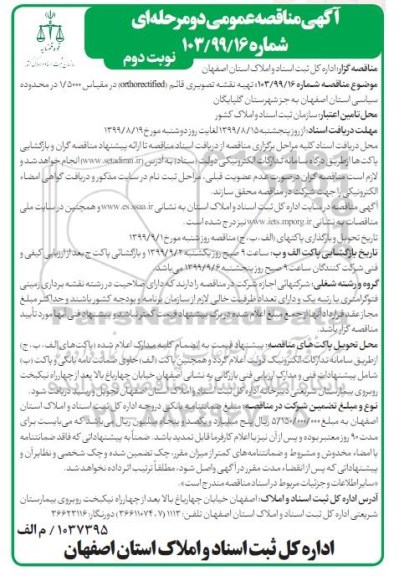 آگهی مناقصه عمومی دو مرحله‌ای
شماره ۱۰۳/۹۹/۱۶
نوبت دوم
مناقصه گزار: اداره کل ثبت اسناد و املاک استان اصفهان
موضوع مناقصه شماره ۱۰۳/۹۹/۱۶: تهیه نقشه تصویری قائم (orthorectified) در مقیاس ۱/۵۰۰۰ در محدوده
سیاسی استان اصفهان به جز شهرستان گلپایگان
محل تامین اعتبار: سازمان ثبت اسناد و املاک کشور
مهلت دریافت اسناد: از روز پنجشنبه ۱۳۹۹/۸/۱۵ لغایت روز دوشنبه مورخ ۱۳۹۹/۸/۱۹
محل دریافت اسناد کلیه مراحل برگزاری مناقصه از دریافت اسناد مناقصه تا ارائه پیشنهاد مناقصه گران و بازگشایی
پاکت‌ها از طریق درگاه سامانه تدارکات الکترونیکی دولت (ستاد) به آدرس (www.setadiran.ir) انجام خواهد شد و
لازم است مناقصه گران درصورت عدم عضویت قبلی، مراحل ثبت نام در سایت مذکور و دریافت گواهی امضاء
الکترونیکی را جهت شرکت در مناقصه محقق سازند.
آگهی مناقصه در سایت اداره کل ثبت اسناد و املاک استان اصفهان به نشانی www.es.ssaa.ir و همچنین در سایت ملی
مناقصات به نشانی www.iets.mporg.ir نیز درج شده است.
تاریخ تحویل و بارگذاری پاکتهای (الف، ب، ج) مناقصه روز شنبه مورخ ۱۳۹۹/۹/۱
تاریخ بازگشایی پاکت الف و ب: ساعت ۹ صبح روز یکشنبه ۱۳۹۹/۹/۲ و بازگشائی پاکت ج بعد از ارزیابی کیفی و
فنی شرکت کنندگان ساعت ۹ صبح روز پنجشنبه ۱۳۹۹/۹/۶ می‌باشد
گروه و رشته شغلی: شرکتهائی اجازه شرکت در مناقصه را دارند که دارای صلاحیت در رشته نقشه برداری زمینی
فتوگرامتری با رتبه یک و دارای تعداد ظرفیت خالی لازم از سازمان برنامه و بودجه کشور باشند و حداکثر مبلغ
مناقصه گزار باشد.
محل تحویل پاکت‌های مناقصه: پیشنهاد قیمت به انضمام کلیه مدارک اعلام شده (پاکت‌های الف، ب، ج)
از طریق سامانه تدارکات الکترونیک دولت اعلام گردد و همچنین پاکت (الف) حاوی ضمانت نامه بانکی و پاکت (ب)
شامل پیشنهادات فنی و مدارک ارزیابی فنی بازرگانی به نشانی اصفهان خیابان چهارباغ بالا بعد از چهارراه نیکبخت
روبروی بیمارستان شریعتی دبیرخانه اداره کل ثبت اسناد و املاک استان اصفهان تحویل و رسید دریافت شود.
نوع و مبلغ تضمین شرکت در مناقصه: مبلغ ضمانتنامه بانکی در وجه اداره کل ثبت اسناد و املاک استان
مدت ۹۰ روز معتبر بوده و پس از آن نیز بنا به اعلام کارفرما قابل تمدید باشد. ضمناً به پیشنهاداتی که فاقد ضمانتنامه
یا امضاء مخدوش و مشروط و ضمانتنامه‌های کمتر از میزان مقرر، چک تضمین شده و چک شخصی و نظایر آن و
پیشنهاداتی که پس از انقضاء مدت مقرر در آگهی واصل شود، مطلقاً ترتیب اثر داده نخواهد شد.
«سایر اطلاعات و جزئیات مربوط در اسناد مناقصه مندرج است».
آدرس اداره کل ثبت اسناد و املاک: اصفهان خیابان چهارباغ بالا بعد از چهارراه نیکبخت روبروی بیمارستان
شریعتی اداره کل ثبت اسناد و املاک استان اصفهان
۱۰۳۷۳۹۵ / م الف
اداره کل ثبت اسناد و املاک استان اصفهان